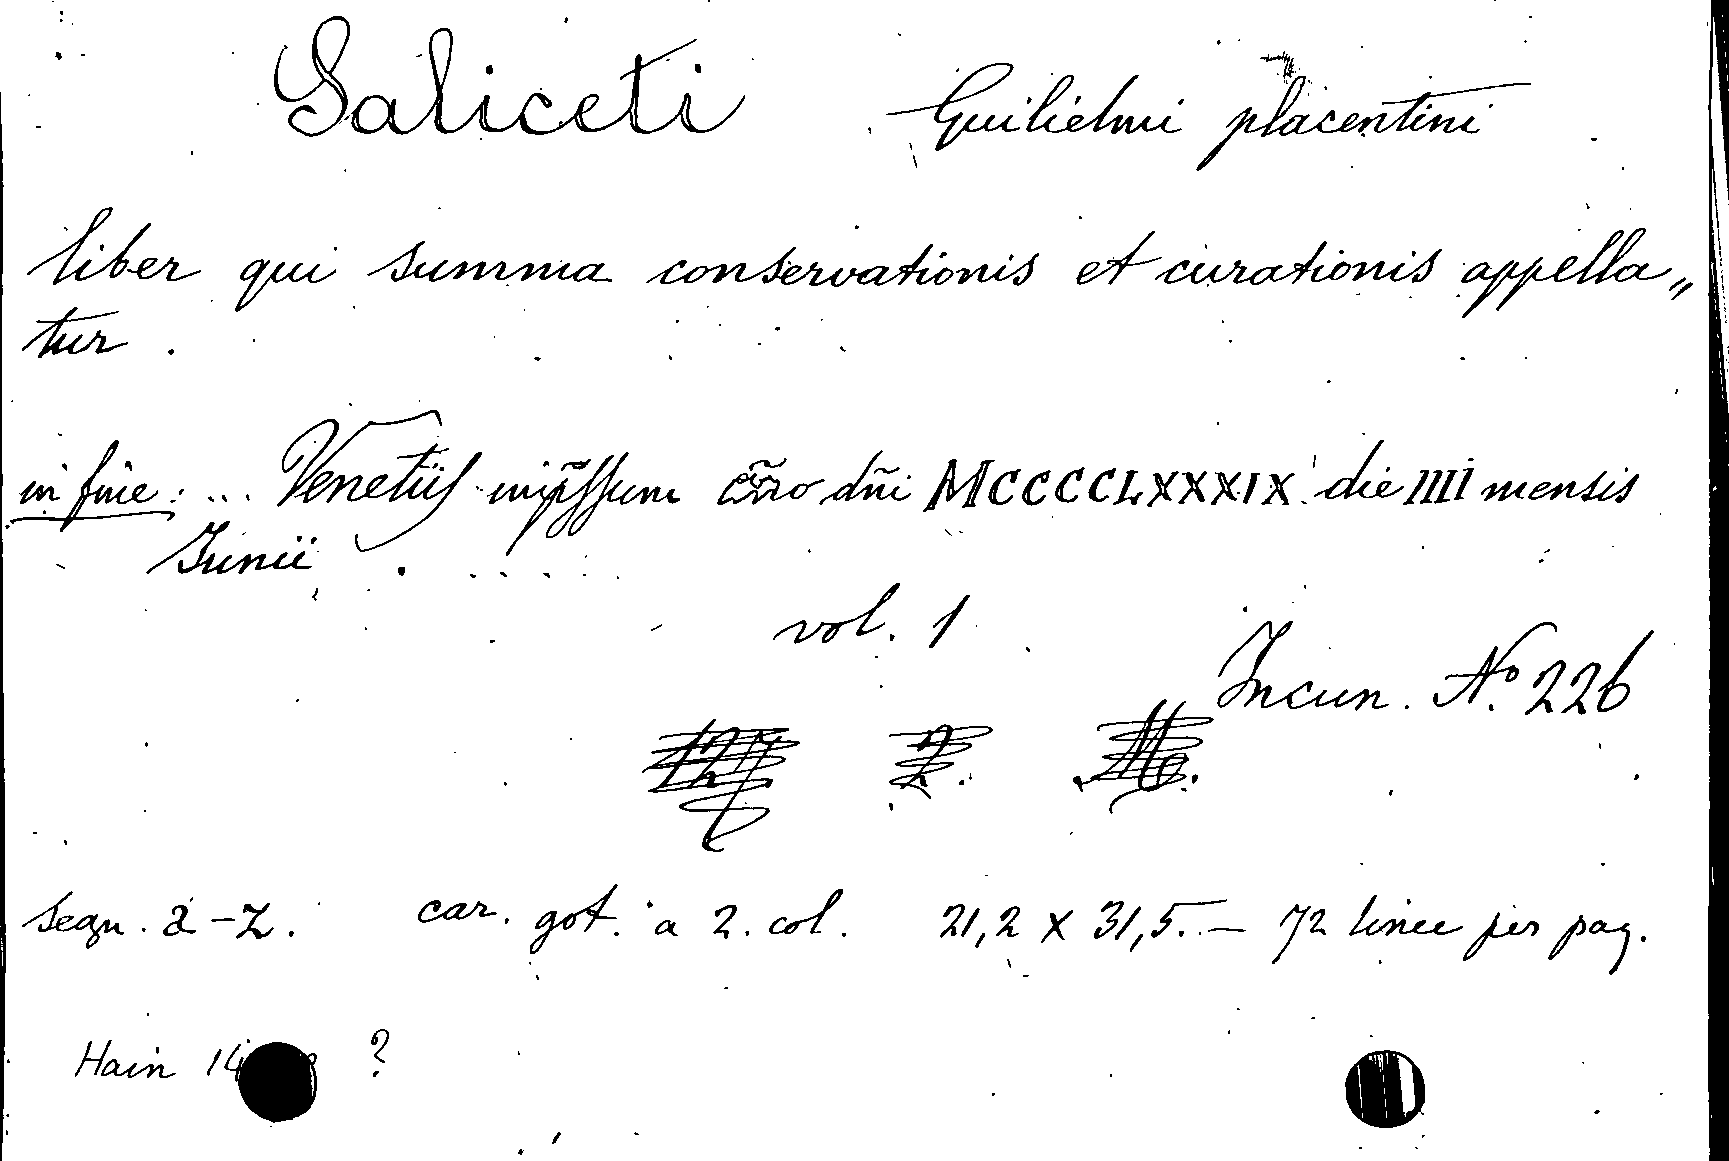 Saliceti Guilielmi placentini
liber qui summa conservationis et curationis appella„
tur.
in fine: ... Venetiis imp̃ssum dñi MCCCCLXXXIX die IIII mensis
Junii .....
vol. 1
Incun. No. 226
segn. a-z. car. got. a 2. col. 21,2 x 31,5. – 72 linee per pag.
Hain ?